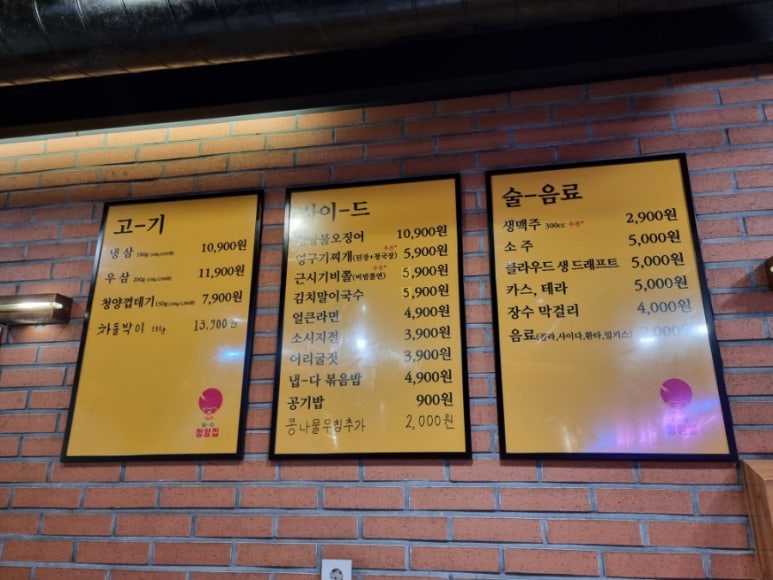 고-기
냉삼 180g 10,900원
우삼 200g 11,900원
청양껍데기 150g 7,900원
차돌박이 180g 13,900원
사이-드
불오징어 10,900원
추천*
영구기찌개(된장+청국장) 5,900원
추천*
근시기비쫄(비빔쫄면) 5,900원
김치말이국수 5,900원
얼큰라면 4,900원
소시지전 3,900원
어리굴젓 3,900원
냅-다 볶음밥 4,900원
공기밥 900원
콩나물무침추가 2,000원
술-음료
생맥주 300cc 추천* 2,900원
소주 5,000원
클라우드 생 드래프트 5,000원
카스, 테라 5,000원
장수 막걸리 4,000원
음료(콜라,사이다,환타,밀키스) 2,000원